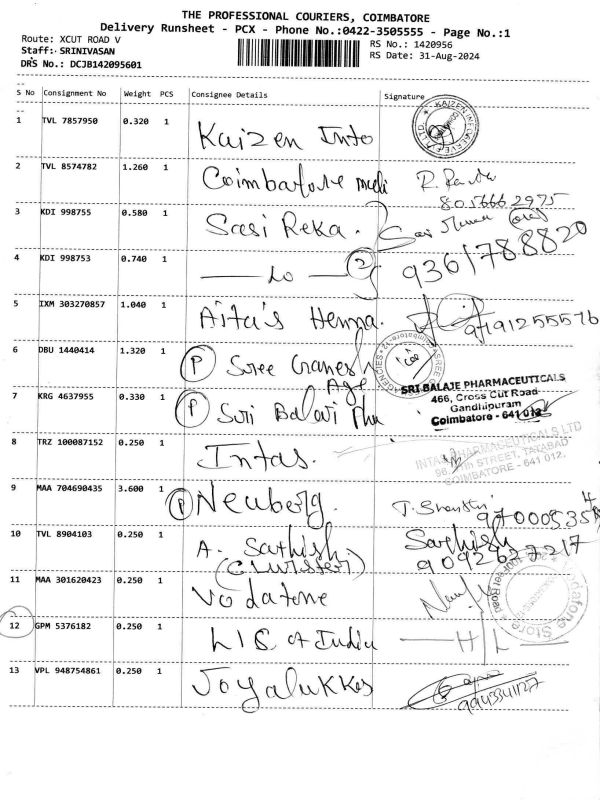 THE PROFESSIONAL COURIERS, COIMBATORE
Delivery Runsheet - PCX - Phone No.:0422-3505555 - Page No.:1
Route: XCUT ROAD V
Staff: SRINIVASAN
DRS No.: DCJB142095601
RS No.: 1420956
RS Date: 31-Aug-2024
S No Consignment No Weight PCS Consignee Details Signature
1 TVL 7857950 0.320 1 Kaizen Info
2 TVL 8574782 1.260 1 Coimbatore
8056662975
3 KDI 998755 0.580 1 Sasi Reka.
4 KDI 998753 0.740 1 2 9361788820
5 IXM 303270857 1.040 1 Henna.
9191255576
6 DBU 1440414 1.320 1 P Sree Ganesh
Age
SRI BALAJE PHARMACEUTICALS
466, Cross Cut Road
Gandhipuram
Coimbatore - 641 012
7 KRG 4637955 0.330 1 P Sri Balaji
8 TRZ 100087152 0.250 1 Intas.
INTAS PHARMACEUTICALS LTD
STREET, TATABAD
COIMBATORE - 641 012.
9 MAA 704690435 3.600 1 P Neuberg.
10 TVL 8904103 0.250 1 A. Sathish Sathish
9092677217
11 MAA 301620423 0.250 1 Vodafone
Vodafone Store
100Feet Road
12 GPM 5376182 0.250 1 LIC of India H/L
13 VPL 948754861 0.250 1 Joyalukkas
9943341127